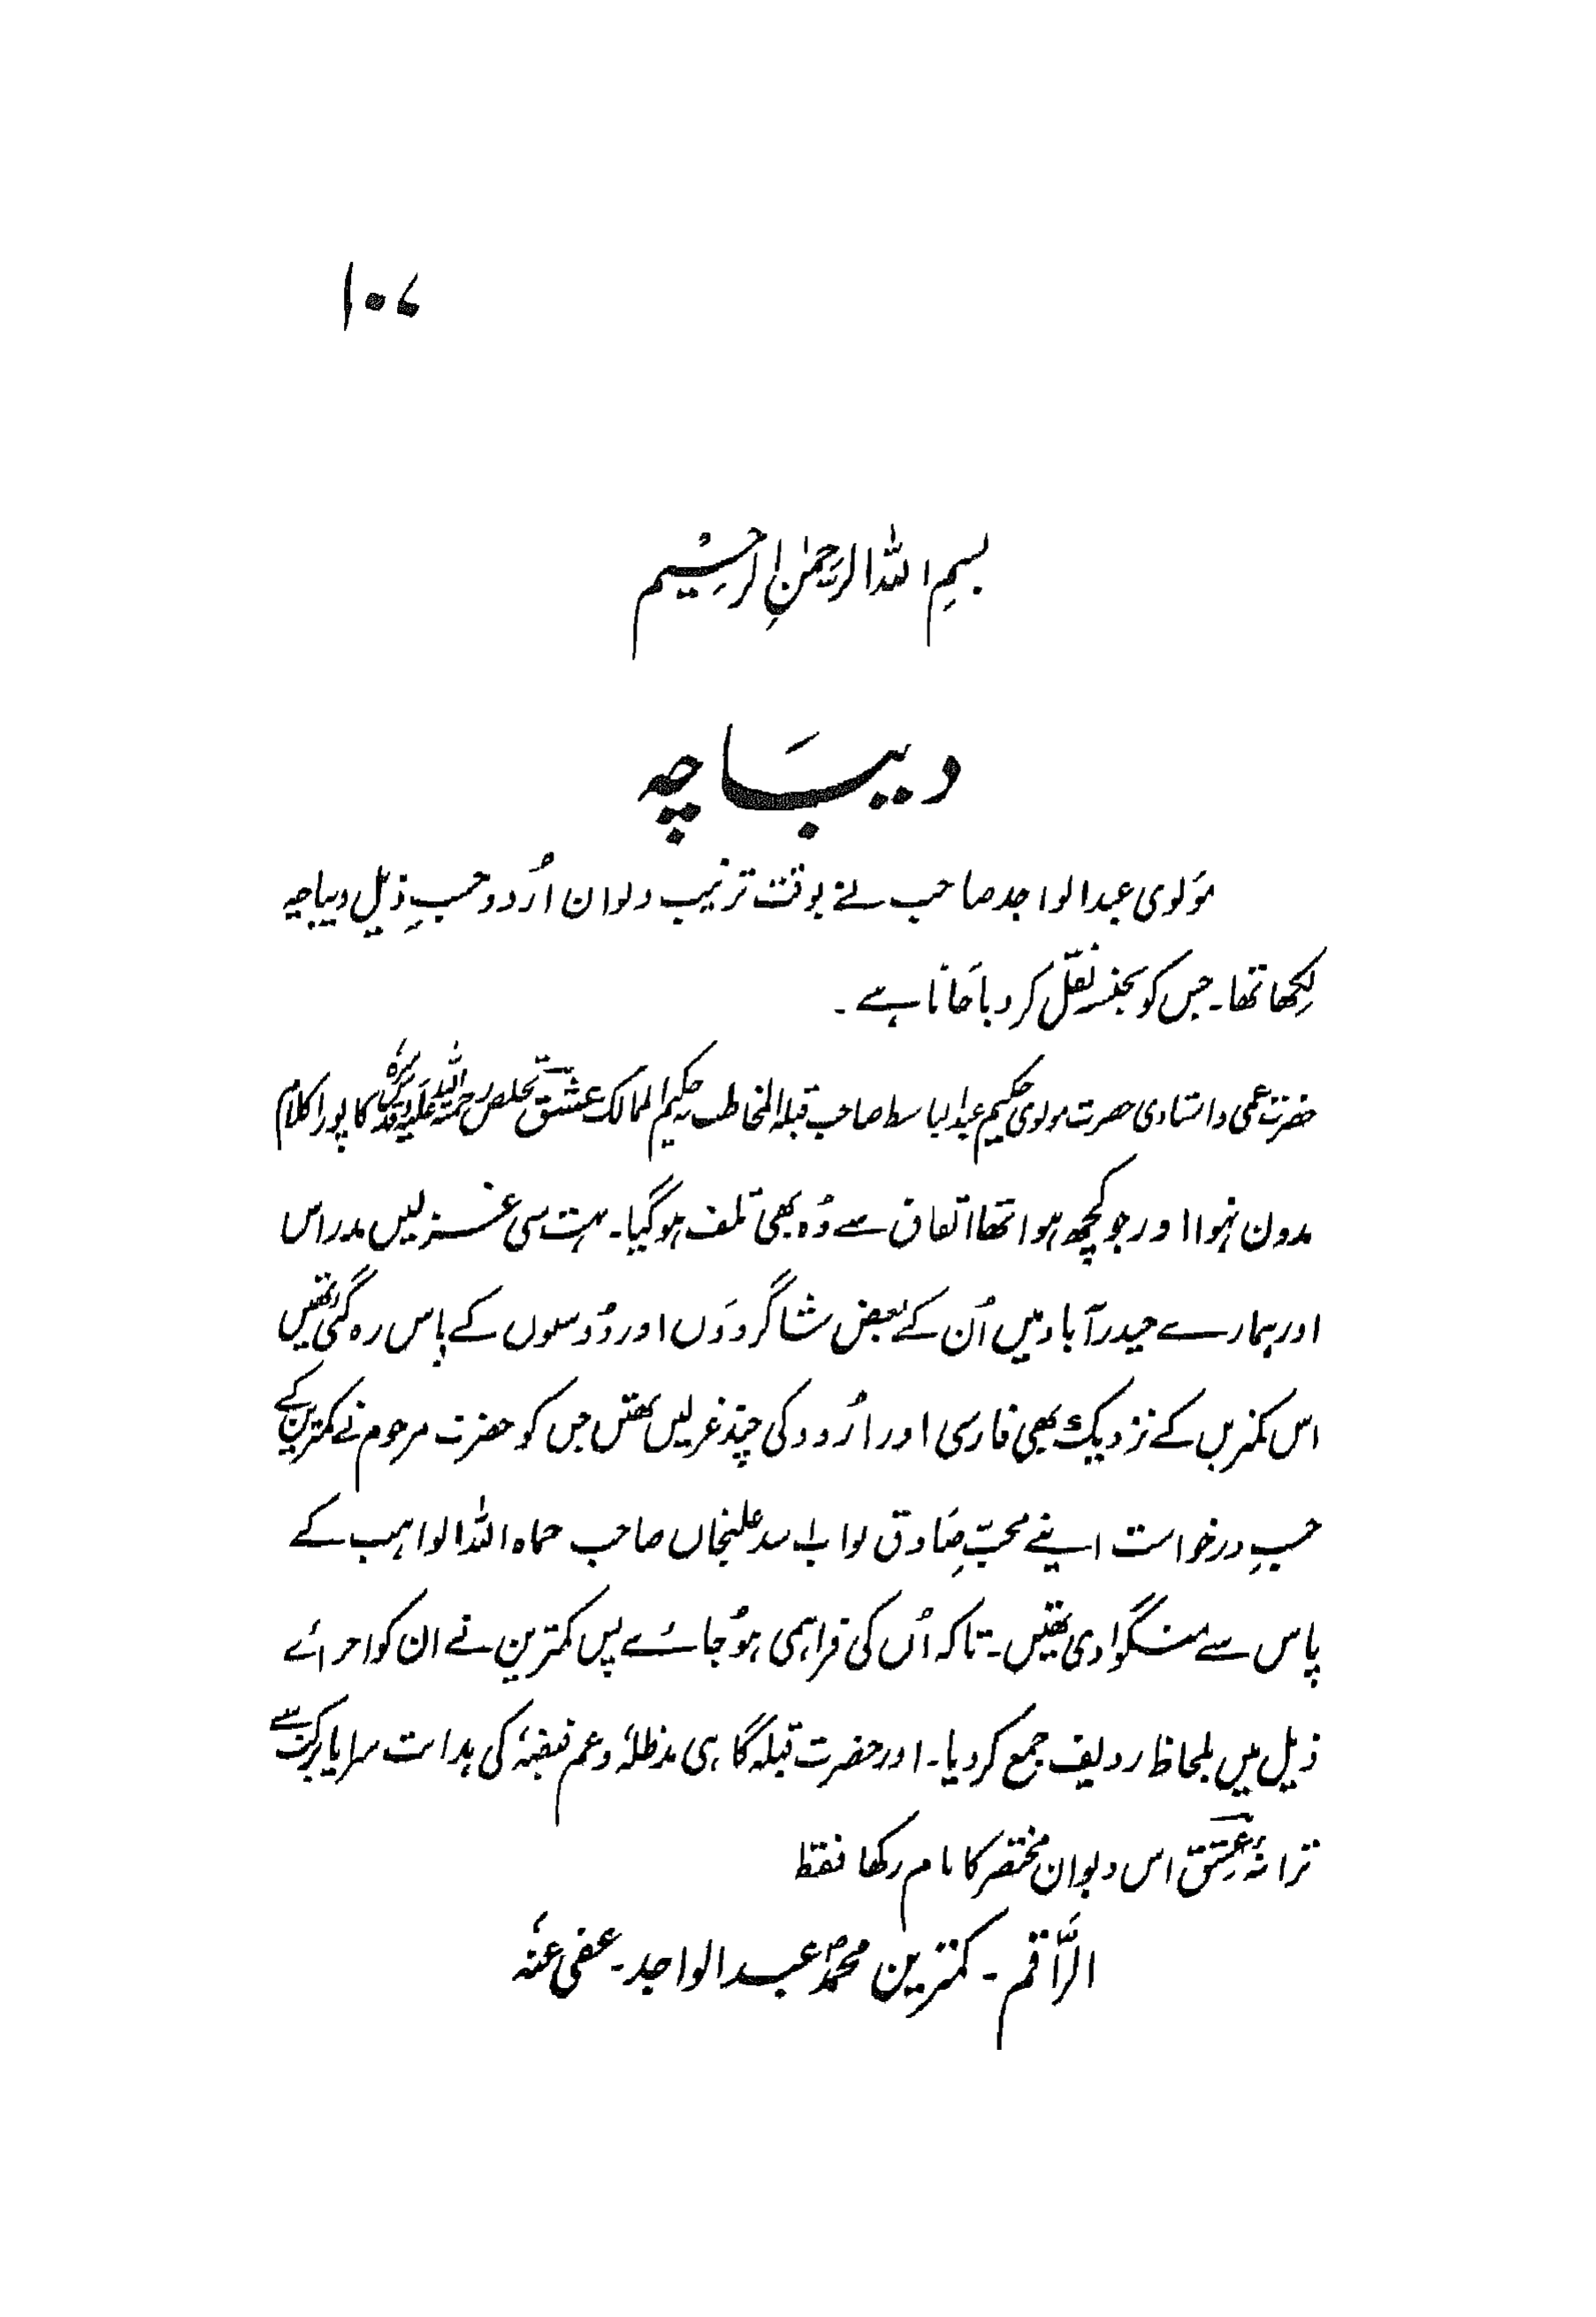 ۱۰۷
بسمِ اللہ الرحمٰنِ الرحِیم
دیبَاچہ
مَولوی عبدالواجد صاحب نے بوقت ترتیب دیوان اُردو حسبِ ذیل دیباچہ
لِکھا تھا۔ جس کو بجنسہ نقل کر دیا جَاتا ہے۔
حضرت عمی و استادی حضرت مولوی حکیم عبدالباسط صاحب قبلہ المخاطب حکیم الممالک عشق تخلص رحمۃ اللہ علیہ و قدس سرہٗ کا پورا کلام
مدون نہوا اور جو کچھ ہوا تھا اتفاق سے وُہ بھی تلف ہوگیا۔ بہت سی غزلیں مدراس
اور ہمارے حیدرآباد میں اُن کے بعض شاگردَوں اور دُوستوں کے پاس رہ گئی تھیں
اس کمترین کے نزدیک بھی فارسی اور اُردو کی چند غزلیں تھیں جس کو حضرت مرحوم نے کمترین کے
حسبِ درخواست اپنے محبِّ صَادق نواب اسد علیخاں صاحب حماہ اللہ الواہب کے
پاس سے منگوا دی تھیں۔ تاکہ اُس کی فراہمی ہوُجائے پس کمترین نے ان کو اجزائے
ذیل میں بلحاظ ردیف جمع کردیا۔ اور حضرت قبلہ گاہی مدظلہٗ وعم فیضہٗ کی ہدایت سراپا برکت سے
ترانۂ عِشق اس دیوان مختصر کا نام رکھا فقط
الرَّاقم۔ کمترین محمدؐ عبدالواجد۔ عفی عنہٗ